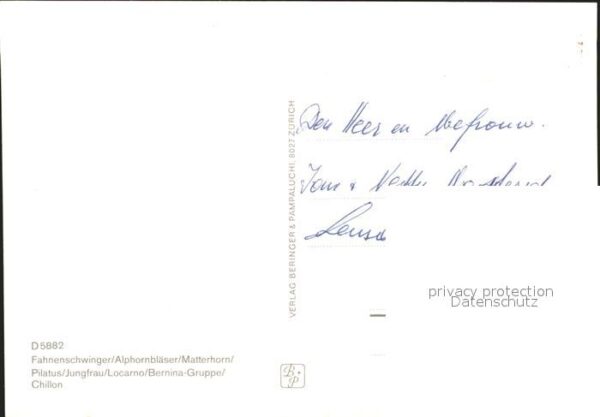 Den Heer en Mefrouw.
VERLAG BERINGER & PAMPALUCHI, 8027 ZÜRICH
privacy protection
Datenschutz
D 5882
Fahnenschwinger/Alphornbläser/Matterhorn/
Pilatus/Jungfrau/Locarno/Bernina-Gruppe/
Chillon
B P